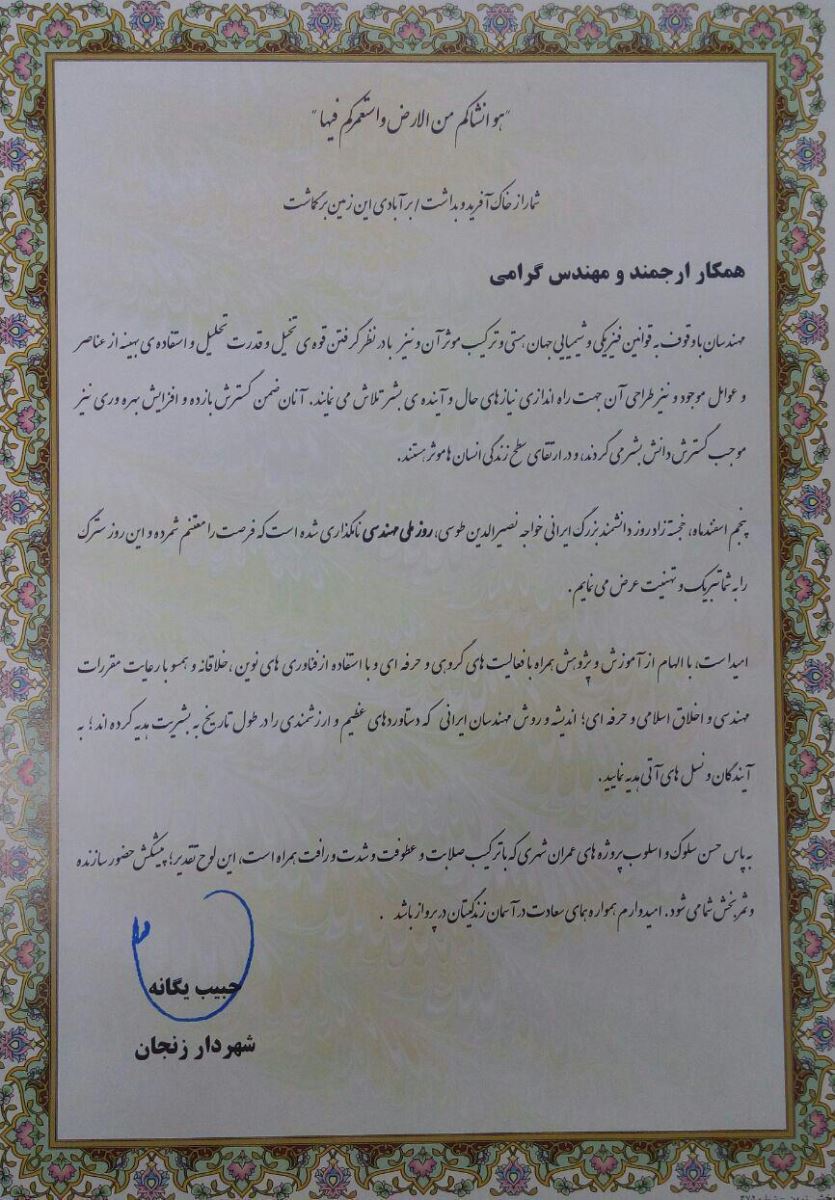 "هو انشاکم من الارض و استعمرکم فیها"
شما را از خاک آفرید و بداشت / بر آبادی این زمین برگماشت
همکار ارجمند و مهندس گرامی
مهندسان با وقوف به قوانین فیزیکی و شیمیایی جهان هستی و ترکیب موثر آن و نیز با در نظر گرفتن قوه ی تخیل و قدرت تحلیل و استفاده ی بهینه از عناصر
و عوامل موجود و نیز طراحی آن جهت راه اندازی نیاز های حال و آینده ی بشر تلاش می نمایند. آنان ضمن گسترش بازده و افزایش بهره وری نیز
موجب گسترش دانش بشر می گردند، و در ارتقای سطح زندگی انسان ها موثر هستند.
پنجم اسفندماه، خجسته زاد روز دانشمند بزرگ ایرانی خواجه نصیرالدین طوسی، روز ملی مهندسی نامگذاری شده است که فرصت را مغتنم شمرده و این روز سترگ
را به شما تبریک و تهنیت عرض می نمایم.
امید است، با الهام از آموزش و پژوهش همراه با فعالیت های گروهی و حرفه ای و با استفاده از فناوری های نوین، خلاقانه و همسو با رعایت مقررات
مهندسی و اخلاق اسلامی و حرفه ای؛ اندیشه و روش مهندسان ایرانی که دستاوردهای عظیم و ارزشمندی را در طول تاریخ به بشریت هدیه کرده اند؛ به
آیندگان و نسل های آتی هدیه نمایید.
به پاس حسن سلوک و اسلوب پروژه های عمران شهری که با ترکیب صلابت و عطوفت و شدت و رافت همراه است، این لوح تقدیر؛ پیشکش حضور سازنده
و ثمربخش شما می شود. امیدوارم همواره همای سعادت در آسمان زندگیتان در پرواز باشد.
حبیب یگانه
شهردار زنجان